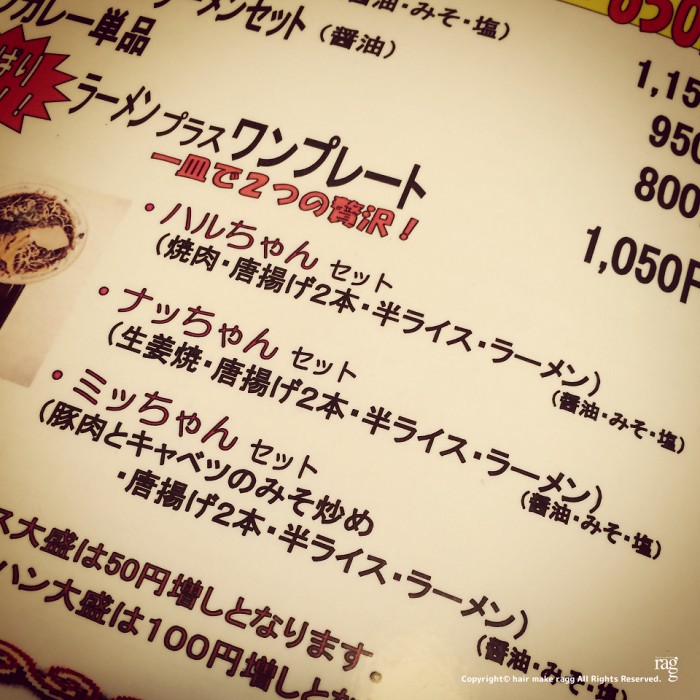 ーメンセット(醤油)
油・みそ・塩)
850
カレー単品
1,15
950
800
ラーメンプラスワンプレート
一皿で2つの贅沢!
1,050円
・ハルちゃん セット
(焼肉・唐揚げ2本・半ライス・ラーメン)
(醤油・みそ・塩)
・ナッちゃん セット
(生姜焼・唐揚げ2本・半ライス・ラーメン)
(醤油・みそ・塩)
・ミッちゃん セット
(豚肉とキャベツのみそ炒め
・唐揚げ2本・半ライス・ラーメン)
(醤油・みそ・塩)
ス大盛は50円増しとなります。
ハン大盛は100円増しとな
rag
Copyright© hair make ragg All Rights Reserved.